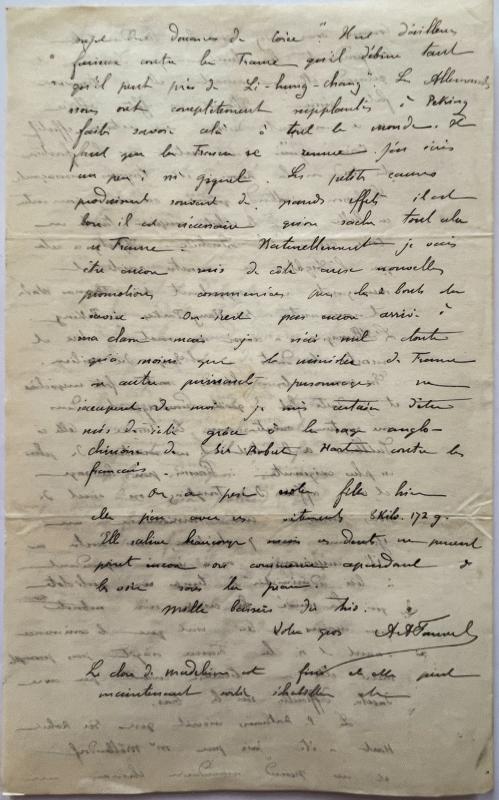 sujet des douanes de Corée". Hart d'ailleurs
furieux contre la France qu'il débine tant
qu'il peut près de Li-hung-chang". Les Allemands
nous ont complètement supplantés à Peking
faites savoir cela à tout le monde. Il
faut que la France se remue. J'en écris
un peu à Mr Giquel. Les petites causes
produisent souvent de grands effets il est
bon il est nécessaire qu'on sache tout cela
en France. Naturellement je vais
être encore mis de côté aux nouvelles
promotions commencées par les 2 bouts du
service. On n'est pas encore arrivé à
ma classe mais je n'ai nul doute
qu'à moins que le ministre de France
ou autre puissant personnage ne
s'occupent de moi je suis certain d'être
mis de côté grâce à la rage anglo-
chinoise de Sir Robert Hart contre les
français.
On a pesé votre fille hier
elle pèse avec ses vêtements 8 Kilo. 172 g.
Elle salive beaucoup mais les dents ne percent
point encore on commence cependant à
les voir sous la peau.
Mille baisers du trio.
Votre gros A A Fauvel
Le clou de Madeleine est fini et elle peut
maintenant sortir